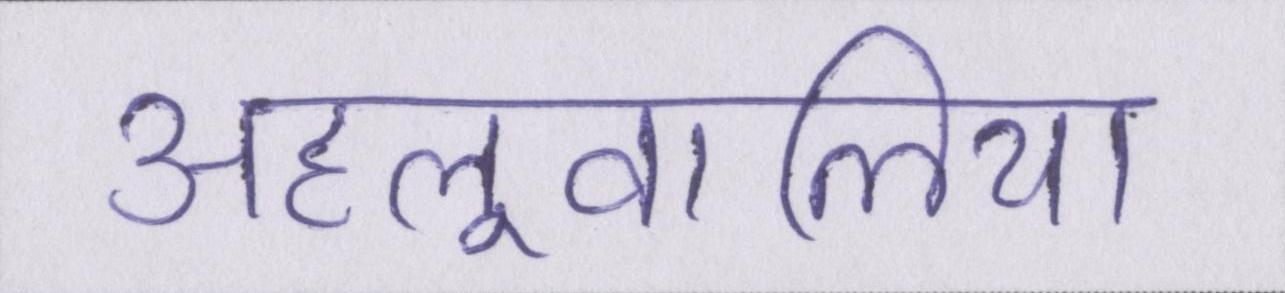 अहलूवालिया